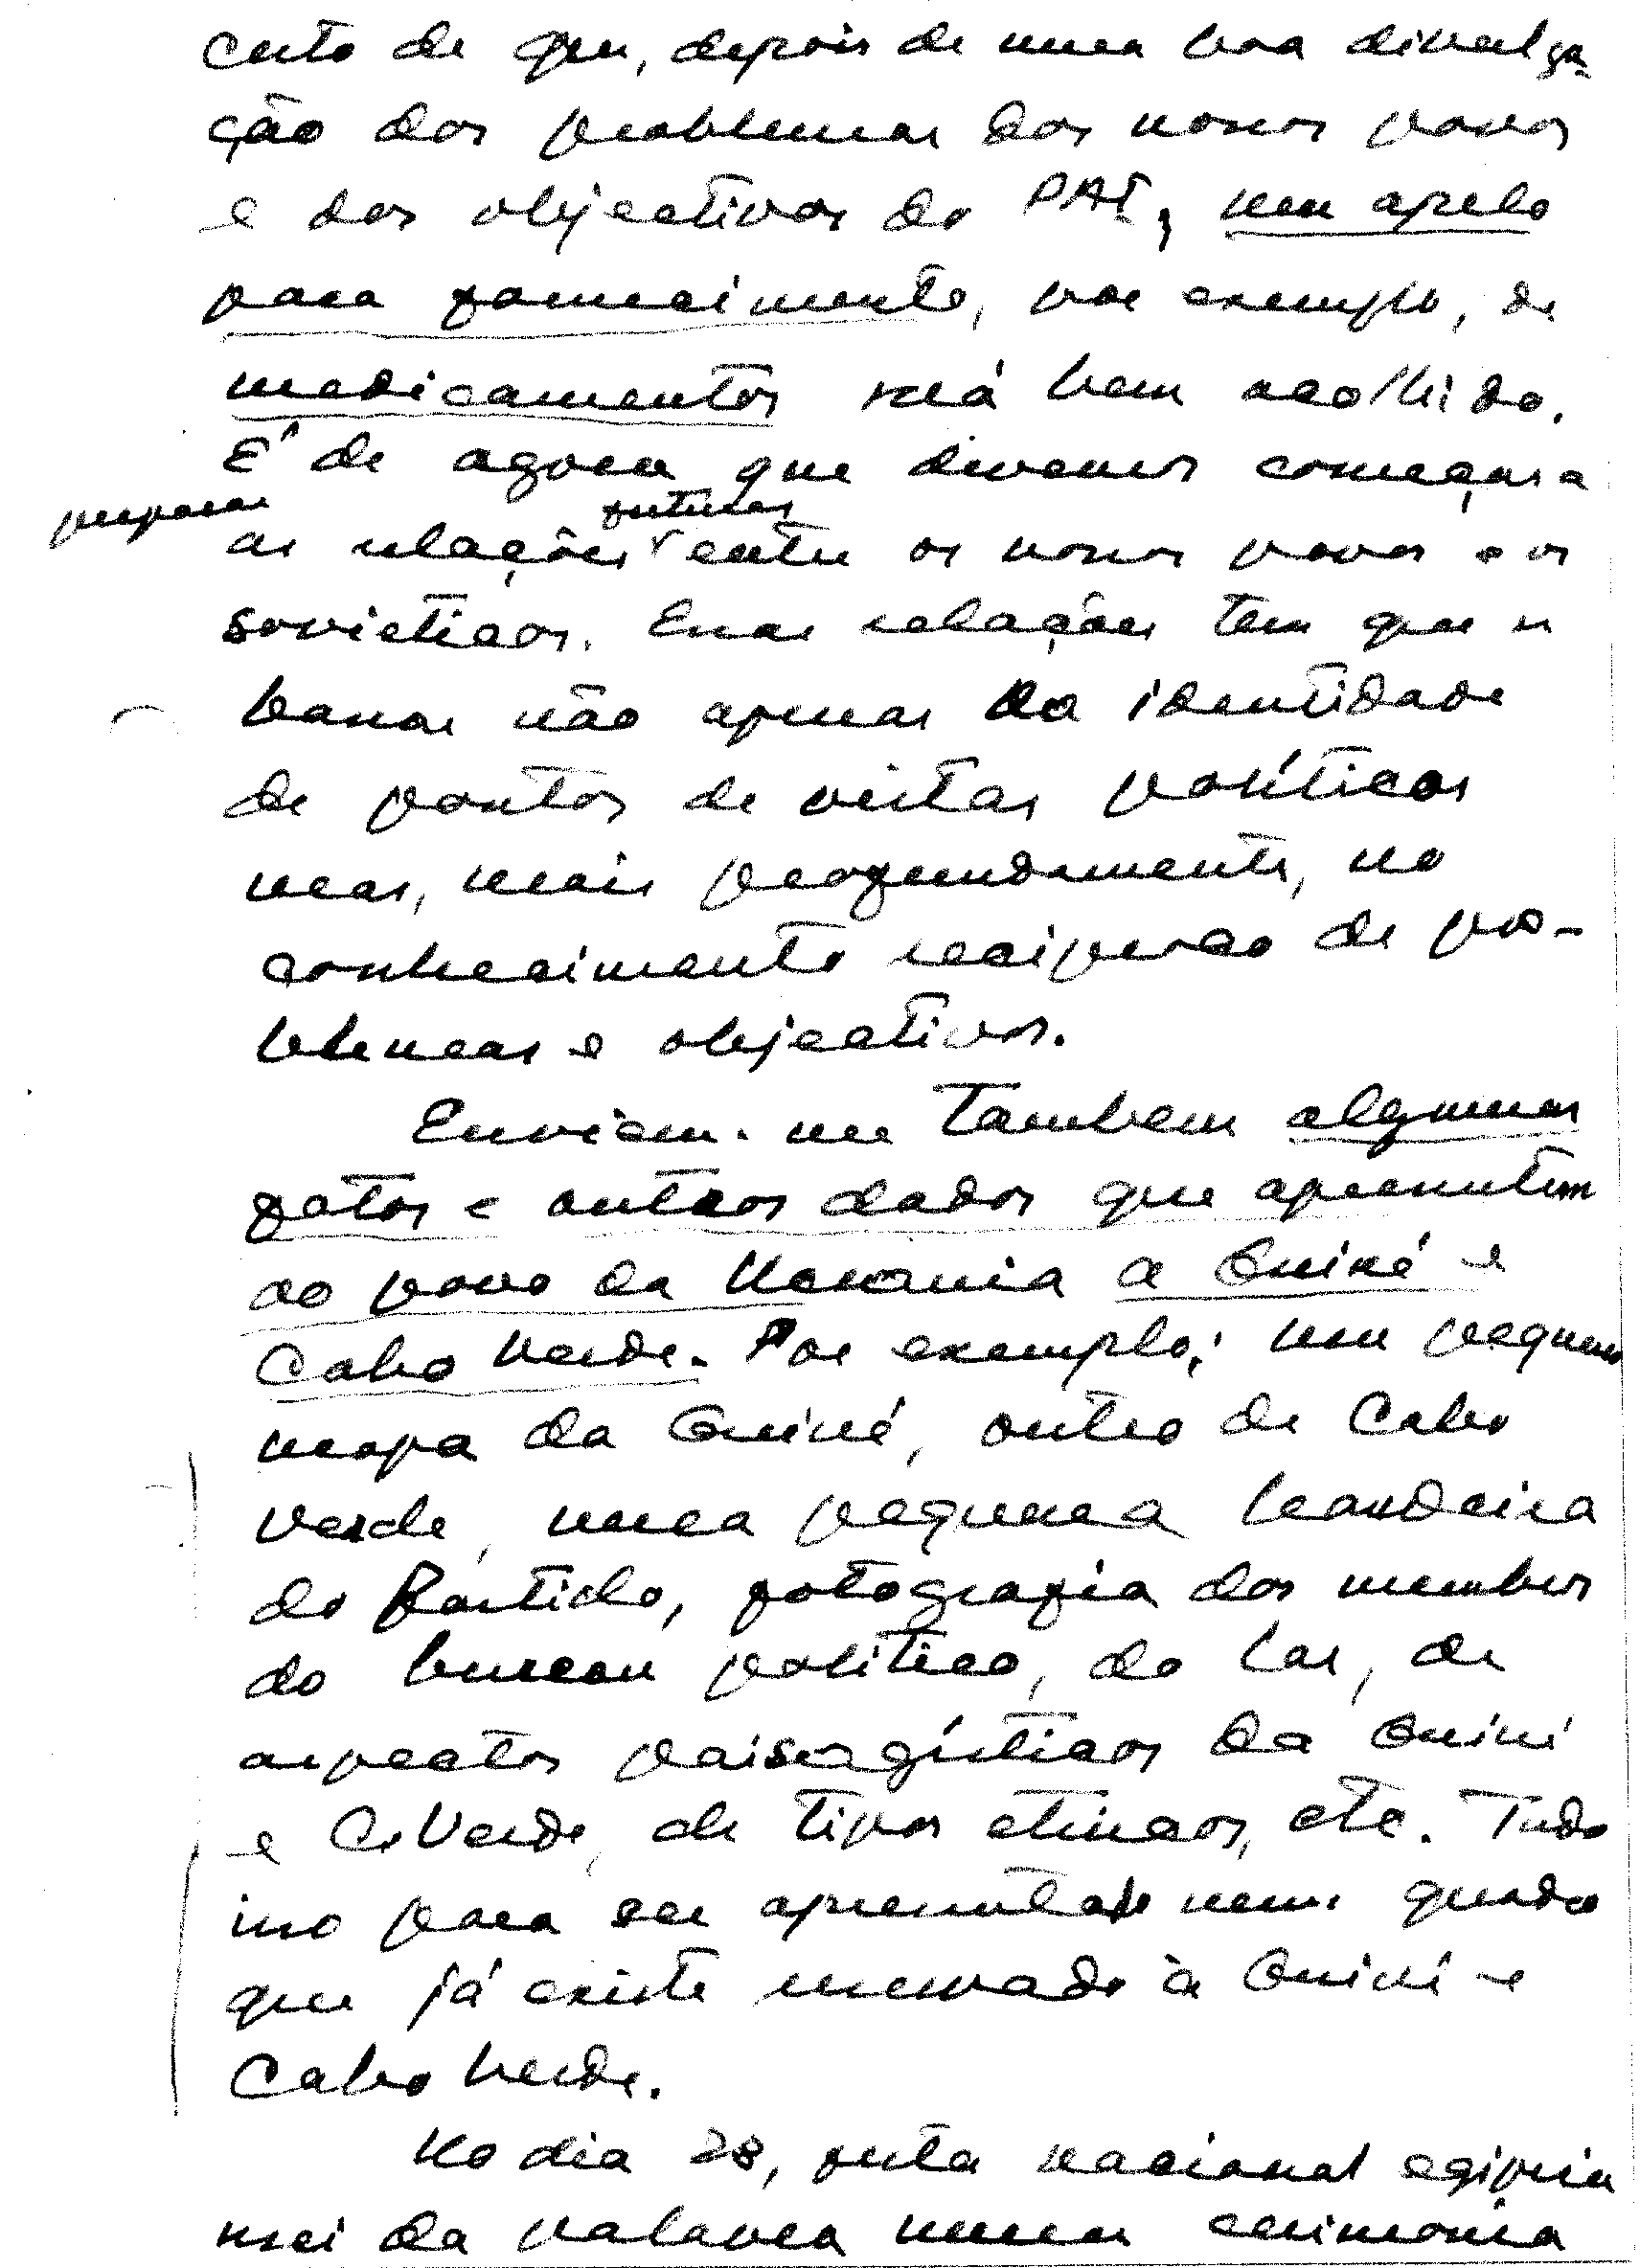 certo de que, depois de uma boa divulga-
ção dos problemas dos nossos povos
e dos objectivos do PAI, um apelo
para fornecimento, por exemplo, de
medicamentos será bem acolhido.
É de agora que devemos começar a
preparar as relações futuras entre os nossos povos e os
sovieticos. Essas relações tem que se
basear não apenas na identidade
de pontos de vistas políticos
mas, mais profundamente, no
conhecimento reciproco de pro-
blemas e objectivos.
Enviem-me tambem algumas
fotos e outros dados que apresentem
ao povo da Ucrania a Guiné e
Cabo Verde. Por exemplo: um pequeno
mapa da Guiné, outro de Cabo
Verde, uma pequena bandeira
do Partido, fotografia dos membros
do bureau politico, do Lar, de
aspectos paisagísticos da Guiné
e C. Verde, de tipos etnicos, etc. Tudo
isso para ser apresentado num quadro
que já existe reservado à Guiné e
Cabo Verde.
No dia 28, festa nacional egipcia
usei da palavra numa cerimonia